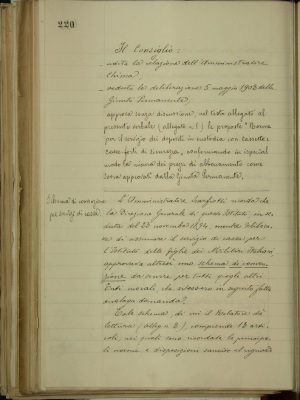 220
Il Consiglio:
udita la relazione dell'Amministratore
Chinca;
veduta la deliberazione 5 maggio 1903 della
Giunta Permanente;
approva senza discussione, nel testo allegato al
presente verbale (allegato n. 1) le proposte "Norme
per il servizio dei depositi in custodia per cassette
casse-forti di sicurezza, confermando in ispecial
modo la misura dei prezzi di abbonamento come
sono approvati dalla Giunta Permanente.
Schema di convenzione
per servizi di cassa.
L'Amministratore ricorda che
la Direzione Generale di questo Istituto in se-
duta del 23 novembre 1894, mentre delibera-
va di assumere il servizio di cassa per
l'Istituto delle figlie dei Militari Italiani
approvava altresì uno schema di conven-
zione da servire per tutti quegli altri
Enti morali, che avessero in seguito fatta
analoga domanda.
Tale schema, di cui il Relatore dà
lettura, (alleg. n. 2), comprende 13 arti-
coli, nei quali sono ricordate le principa-
li norme e disposizioni sancite al riguardo